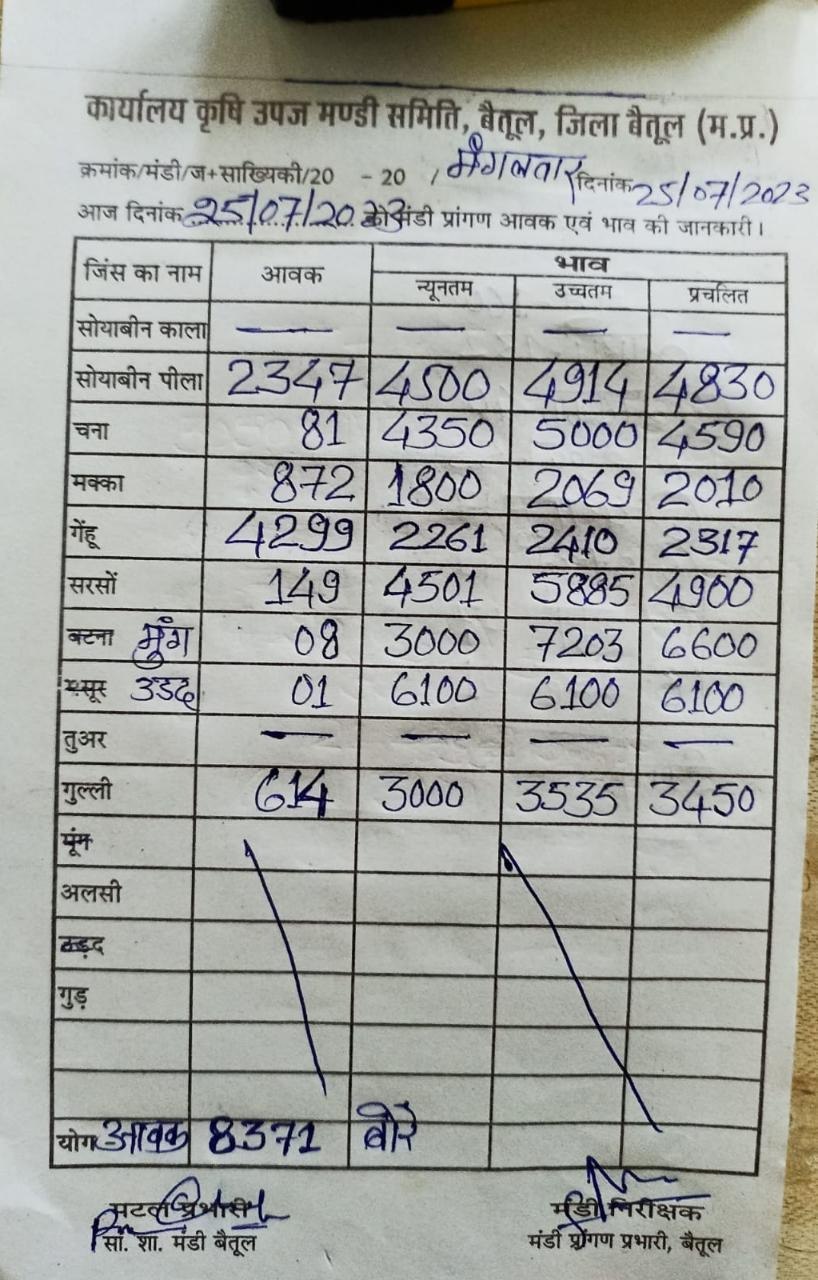 कार्यालय कृषि उपज मण्डी समिति, बैतूल, जिला बैतूल (म.प्र.)
क्रमांक/मंडी/ज+साख्यिकी/20 - 20 / मंगलवार दिनांक 25/07/2023
आज दिनांक 25/07/2023 को मंडी प्रांगण आवक एवं भाव की जानकारी।
जिंस का नाम आवक भाव
न्यूनतम उच्चतम प्रचलित
सोयाबीन काला — — — —
सोयाबीन पीला 2347 4500 4914 4830
चना 81 4350 5000 4590
मक्का 872 1800 2069 2010
गेंहू 4299 2261 2410 2317
सरसों 149 4501 5885 4900
बटना मुंग 08 3000 7203 6600
मसूर उडद 01 6100 6100 6100
तुअर — — — —
गुल्ली 614 3000 3535 3450
मूंग
अलसी
उड़द
गुड़
योग आवक 8371 बोरे
प्रभारी मंडी निरीक्षक
सां. शा. मंडी बैतूल मंडी प्रांगण प्रभारी, बैतूल